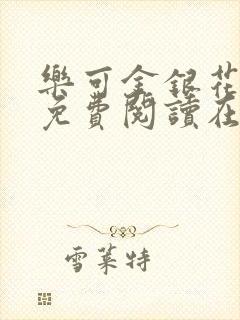 樂可金銀花
免費閱讀在
雪萊特